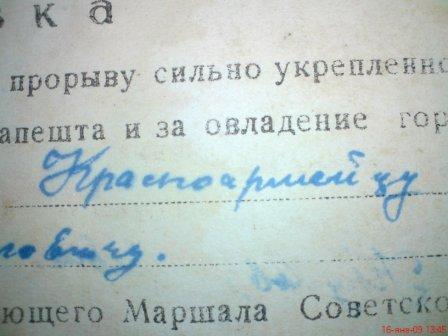 вка
прорыву сильно укрепленно
апешта и за овладение гор
Красноармейцу
овичу.
ющего Маршала Советско
16-янв-09 13:45